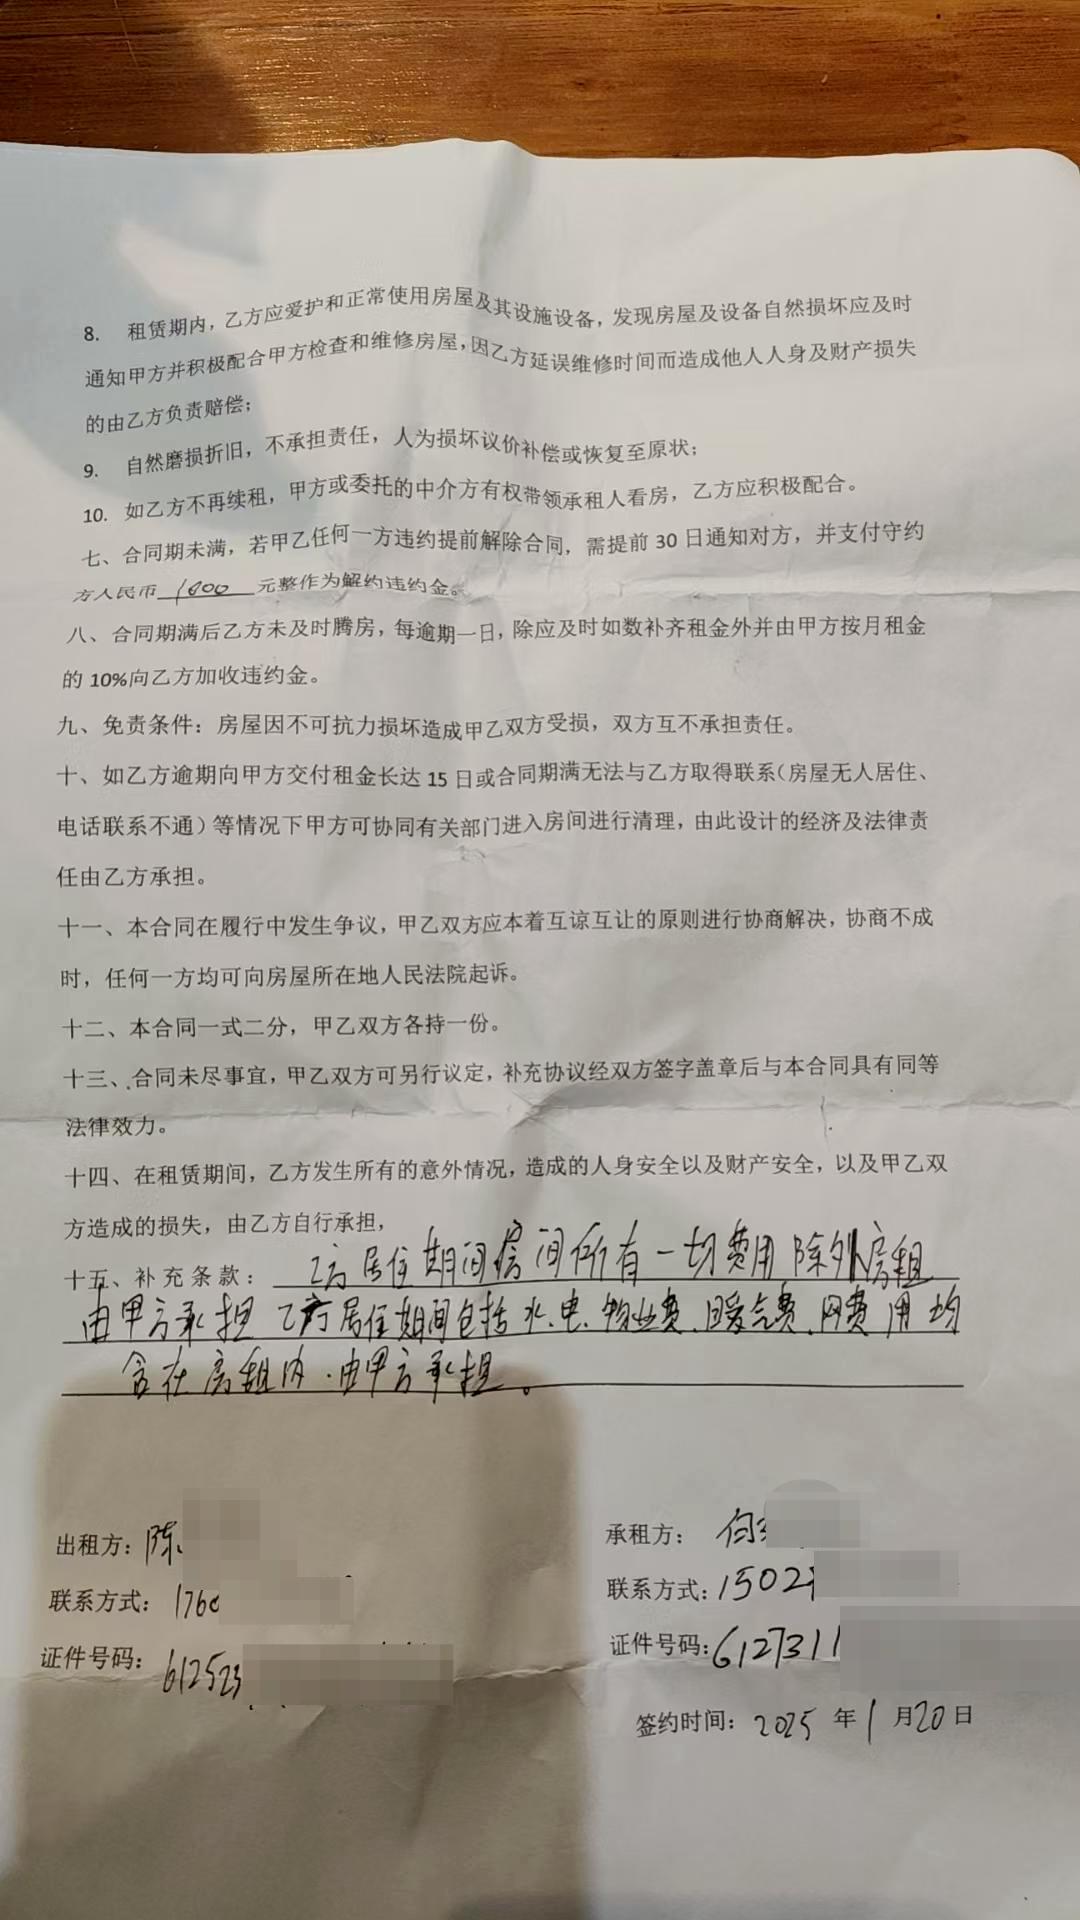 8. 租赁期内，乙方应爱护和正常使用房屋及其设施设备，发现房屋及设备自然损坏应及时
通知甲方并积极配合甲方检查和维修房屋，因乙方延误维修时间而造成他人人身及财产损失
的由乙方负责赔偿；
9. 自然磨损折旧，不承担责任，人为损坏议价补偿或恢复至原状；
10. 如乙方不再续租，甲方或委托的中介方有权带领承租人看房，乙方应积极配合。
七、合同期未满，若甲乙任何一方违约提前解除合同，需提前 30 日通知对方，并支付守约
方人民币 1600 元整作为解约违约金。
八、合同期满后乙方未及时腾房，每逾期一日，除应及时如数补齐租金外并由甲方按月租金
的 10%向乙方加收违约金。
九、免责条件：房屋因不可抗力损坏造成甲乙双方受损，双方互不承担责任。
十、如乙方逾期向甲方交付租金长达 15 日或合同期满无法与乙方取得联系（房屋无人居住、
电话联系不通）等情况下甲方可协同有关部门进入房间进行清理，由此设计的经济及法律责
任由乙方承担。
十一、本合同在履行中发生争议，甲乙双方应本着互谅互让的原则进行协商解决，协商不成
时，任何一方均可向房屋所在地人民法院起诉。
十二、本合同一式二分，甲乙双方各持一份。
十三、合同未尽事宜，甲乙双方可另行议定，补充协议经双方签字盖章后与本合同具有同等
法律效力。
十四、在租赁期间，乙方发生所有的意外情况，造成的人身安全以及财产安全，以及甲乙双
方造成的损失，由乙方自行承担，
十五、补充条款：乙方居住期间房间所有一切费用除外房租
由甲方承担 乙方居住期间包括水、电、物业费、暖气费、网费用均
含在房租内．由甲方承担。
出租方：陈
承租方：
联系方式：176
联系方式：1502
证件号码：612523
证件号码：6127311
签约时间：2025 年 1 月 20 日